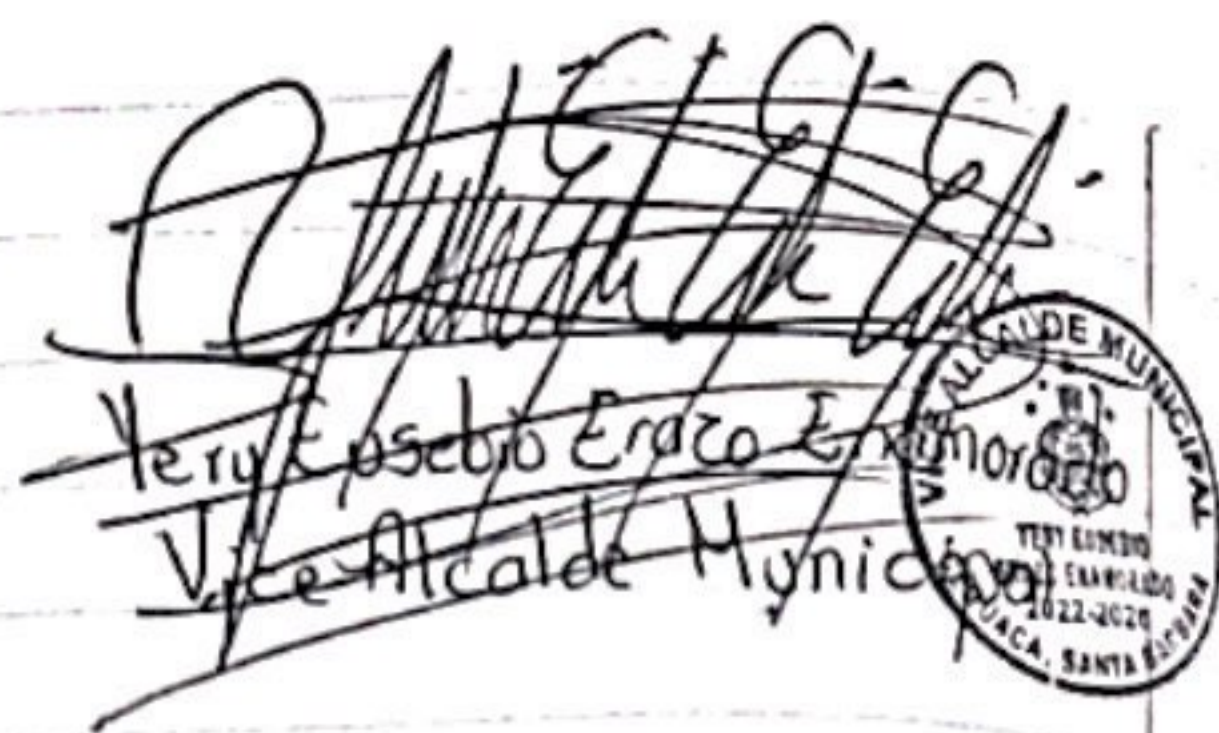 Yery Eusebio Erazo Enamorado
Vice Alcalde Municipal
VICE ALCALDE MUNICIPAL
YERY EUSEBIO
ENAMORADO
2022-2026
SANTA BARBARA